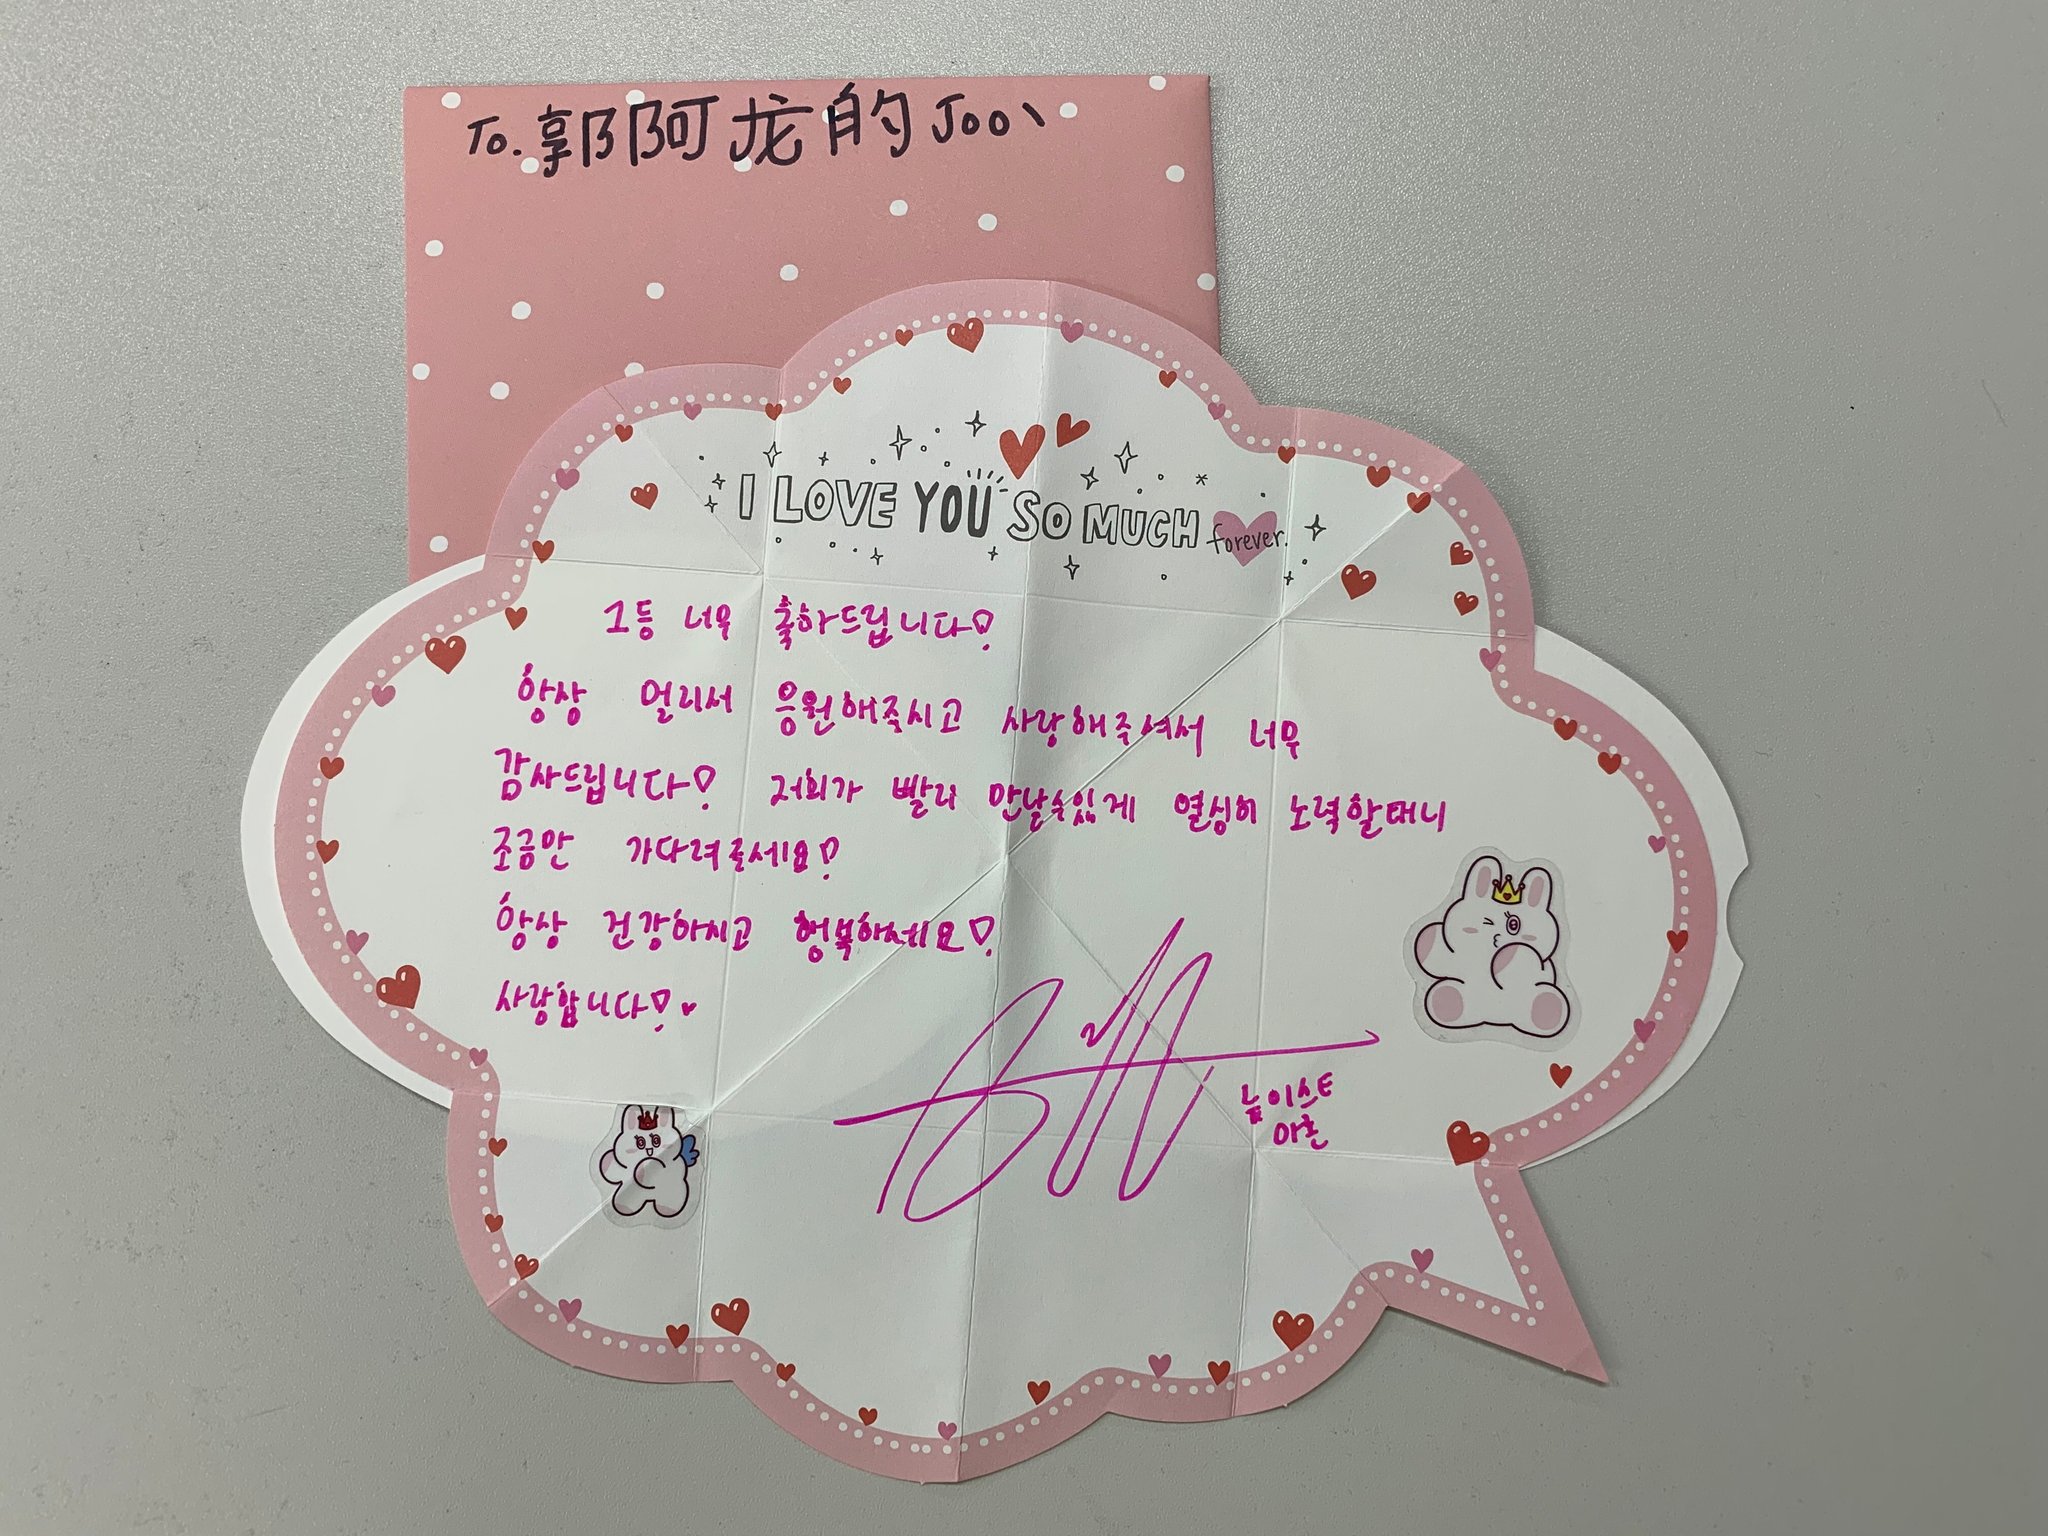 To. 郭阿龙的Joo、
I LOVE YOU SO MUCH forever.
1등 너무 축하드립니다♡
항상 멀리서 응원해주시고 사랑해주셔서 너무
감사드립니다♡ 저희가 빨리 만날수있게 열심히 노력할테니
조금만 기다려주세요♡
항상 건강하시고 행복하세요♡
사랑합니다♡♥
뉴이스트
아론